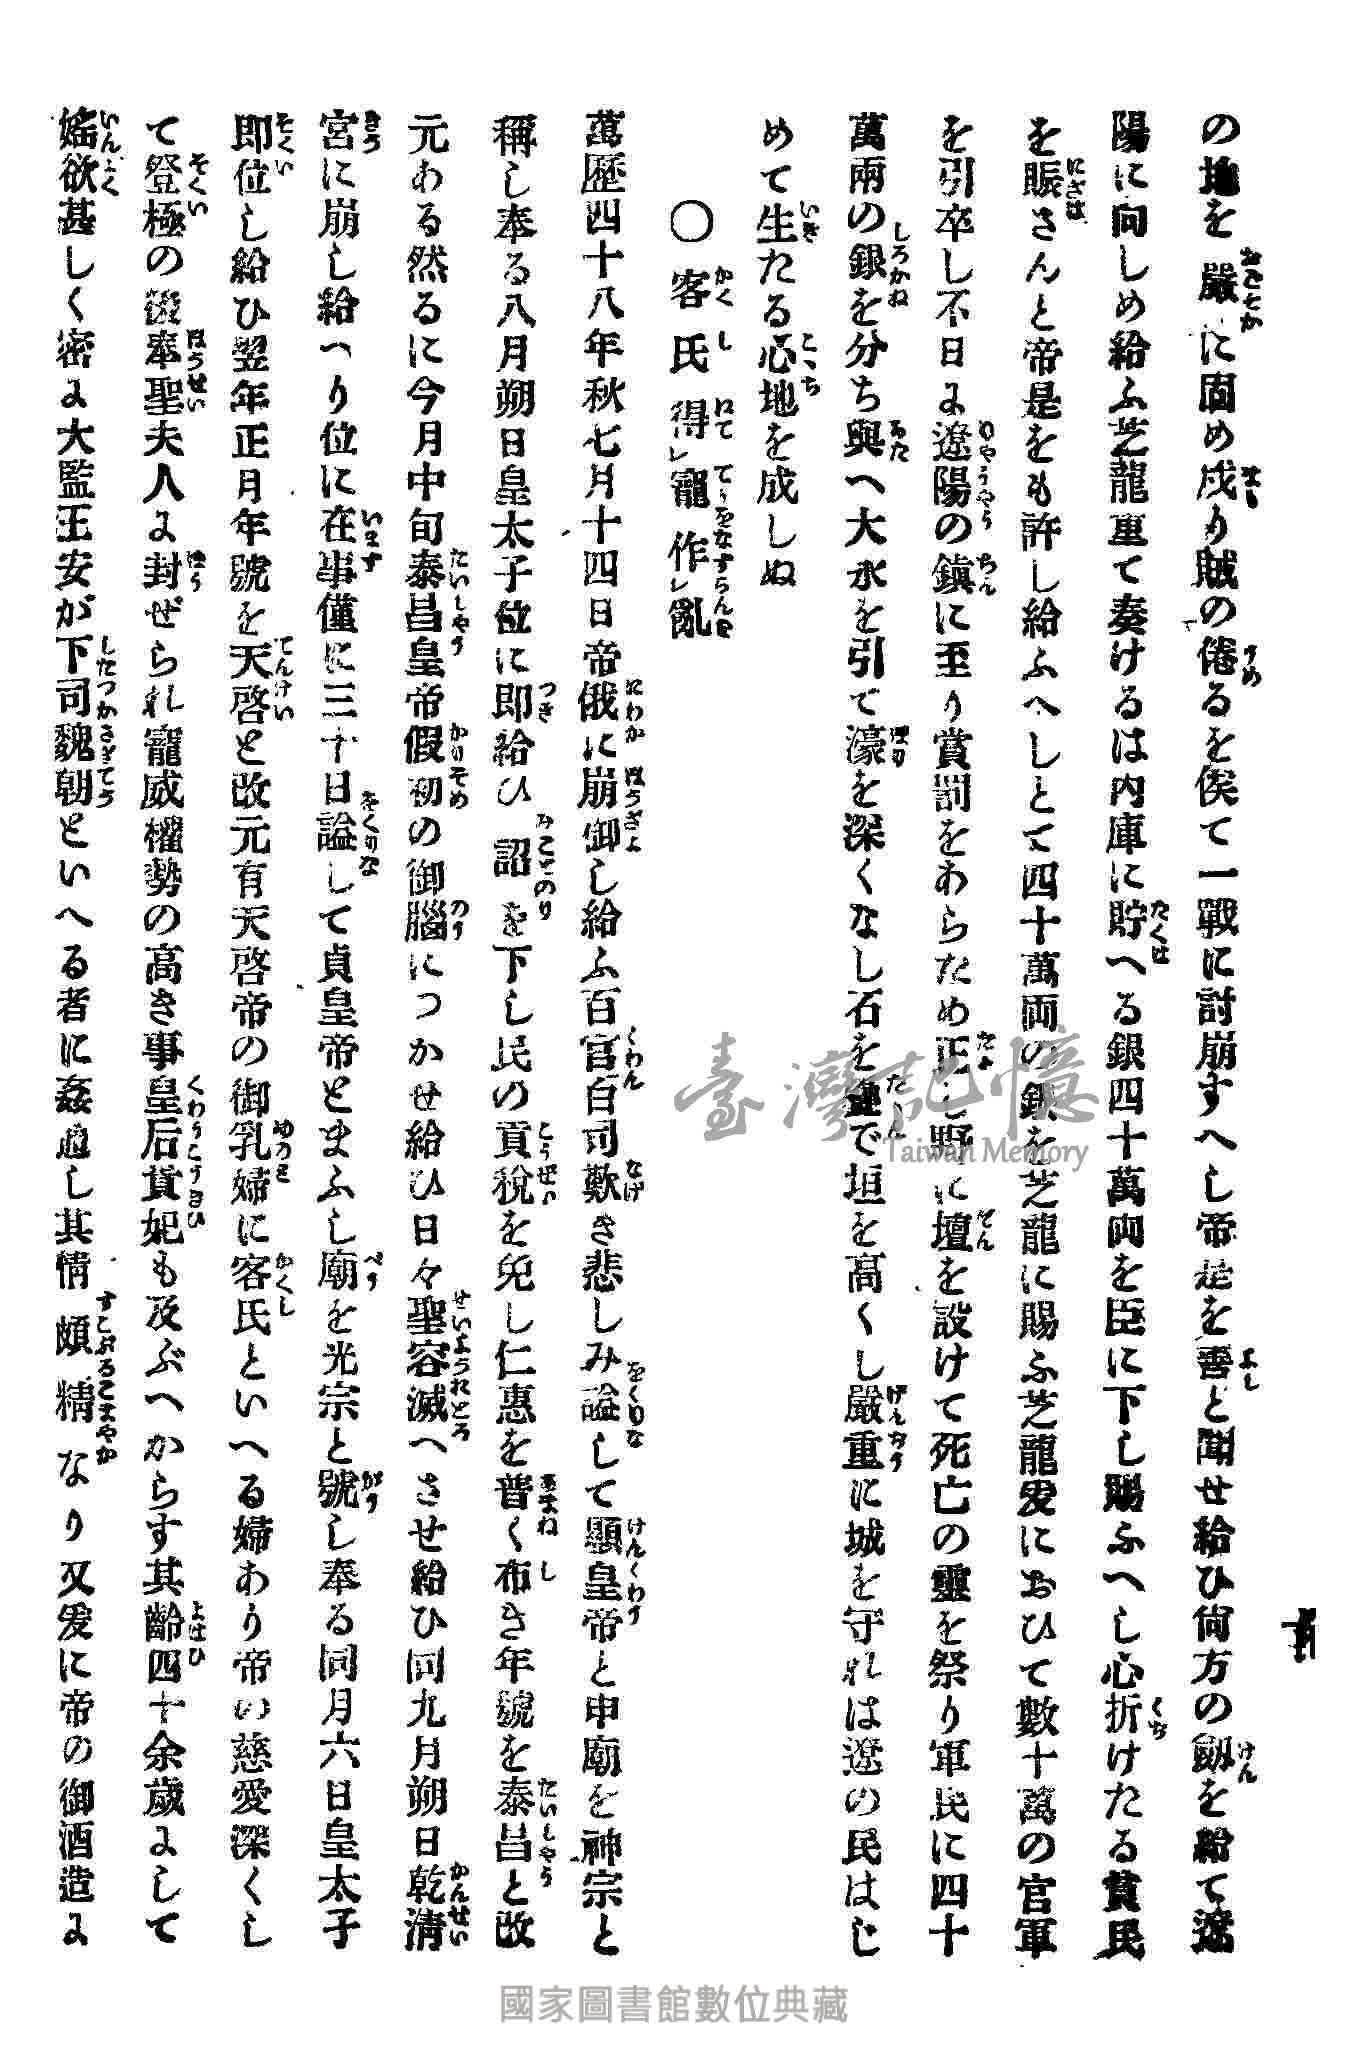 の地を嚴に固め戍り賊の倦るを俟て一戰に討崩すへし帝是を善と聞せ給ひ尙方の劔を給て遼
陽に向しめ給ふ芝龍重て奏けるは內庫に貯へる銀四十萬両を臣に下し賜ふへし心折けたる貧民
を賑さんと帝是をも許し給ふへしとて四十萬両の銀を芝龍に賜ふ芝龍爰におひて數十萬の官軍
を引卒し不日に遼陽の鎭に至り賞罰をあらため正し野に壇を設けて死亡の靈を祭り軍民に四十
萬兩の銀を分ち與へ大水を引て濠を深くなし石を疊で垣を高くし嚴重に城を守れは遼の民はじ
めて生たる心地を成しぬ
〇客氏得レ寵作レ亂
萬歷四十八年秋七月十四日帝俄に崩御し給ふ百官百司歎き悲しみ謚して顯皇帝と申廟を神宗と
稱し奉る八月朔日皇太子位に卽給ひ詔を下し民の貢稅を免し仁惠を普く布き年號を泰昌と改
元ある然るに今月中旬泰昌皇帝假初の御腦につかせ給ひ日々聖容減へさせ給ひ同九月朔日乾淸
宮に崩し給へり位に在事僅に三十日謚して貞皇帝とまふし廟を光宗と號し奉る同月六日皇太子
卽位し給ひ翌年正月年號を天啓と改元有天啓帝の御乳婦に客氏といへる婦あり帝の慈愛深くし
て登極の後奉聖夫人に封ぜられ寵威權勢の高き事皇后貴妃も及ぶへからす其齡四十余歲にして
婬欲甚しく密に大監王安が下司魏朝といへる者に姦通し其情頗精なり又爰に帝の御酒造に
十一
臺灣記憶
Taiwan Memory
國家圖書館數位典藏